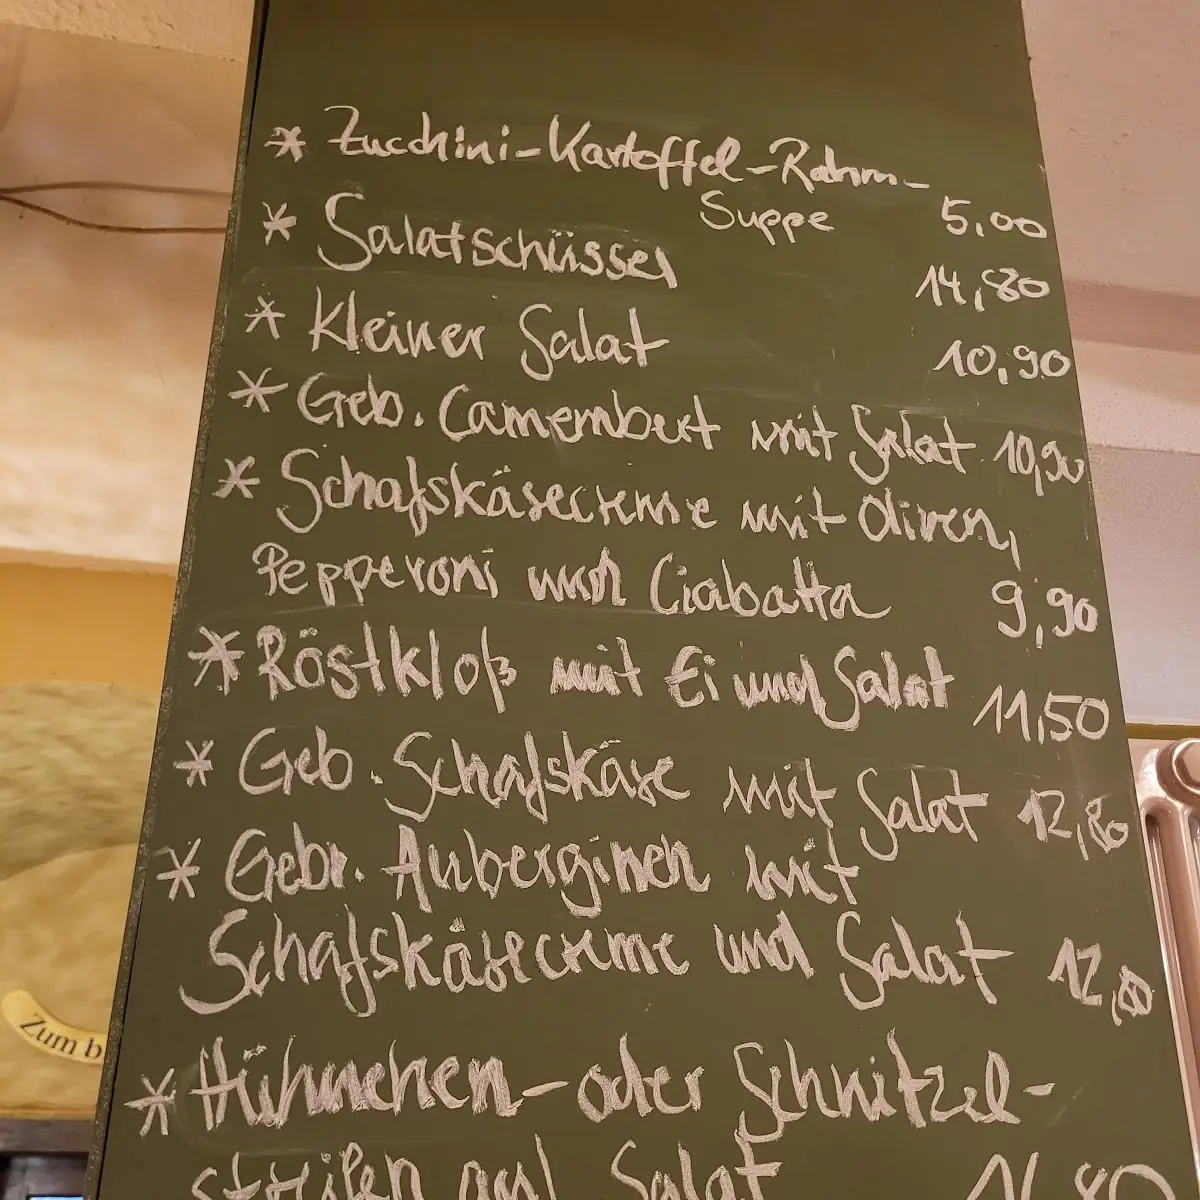 * Zucchini-Kartoffel-Rahm-
Suppe 5,00
* Salatschüssel 14,80
* Kleiner Salat 10,90
* Geb. Camembert mit Salat 10,90
* Schafskäsecreme mit Oliven,
Pepperoni und Ciabatta 9,90
* Röstkloß mit Ei und Salat 11,50
* Geb. Schafskäse mit Salat 12,80
* Gebr. Auberginen mit
Schafskäsecreme und Salat
* Hühnchen- oder Schnitzel-
streifen auf Salat
Zum b